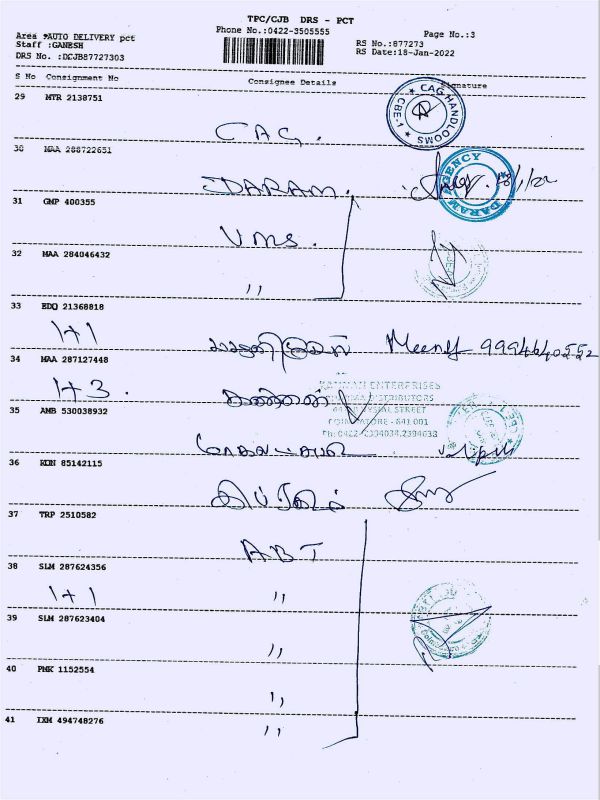 TPC/CJB DRS - PCT
Phone No.:0422-3505555
Page No.:3
Area :AUTO DELIVERY pct
Staff :GANESH
RS No.:877273
RS Date:18-Jan-2022
DRS No. :DCJB87727303
S No Consignment No Consignee Details Signature
29 MTR 2138751
CAG.
CAG HANDLOOMS
CBE-1
30 MAA 288722651
DARAM.
DARAM AGENCY
31 GMP 400355
VMS.
32 MAA 284046432
,,
33 EDQ 21368818
1+1
34 MAA 287127448
1+3.
KANNAN ENTERPRISES
DISTRIBUTORS
STREET
COIMBATORE - 641 001
35 AMB 530038932
36 KDN 85142115
37 TRP 2510582
ABT
38 SLM 287624356
1+1 ,,
39 SLM 287623404
,,
40 PMK 1152554
,,
41 IXM 494748276
,,